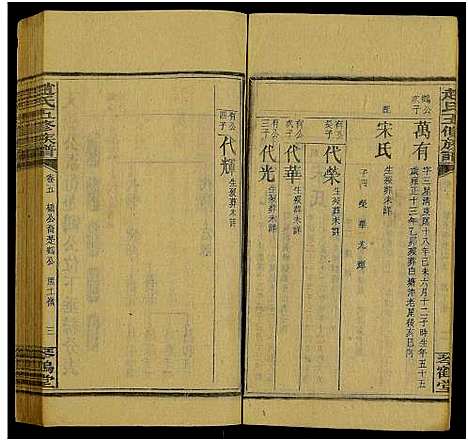 趙氏五修族譜
鶴公
次子
萬有
字三星清康熙十八年己未六月十二子時生年五十五
歲雍正十三年乙卯歿葬白塘沖老屋後亥巳向
配
宋氏
子四 榮 華 光 輝
有公
長子
代榮
生歿葬未詳
有公
次子
代華
生歿葬未詳
有公
三子
代光
生歿葬未詳
琴鶴堂
有公
四子
代輝
生歿葬未詳
趙氏五修族譜
卷五
三
琴鶴堂